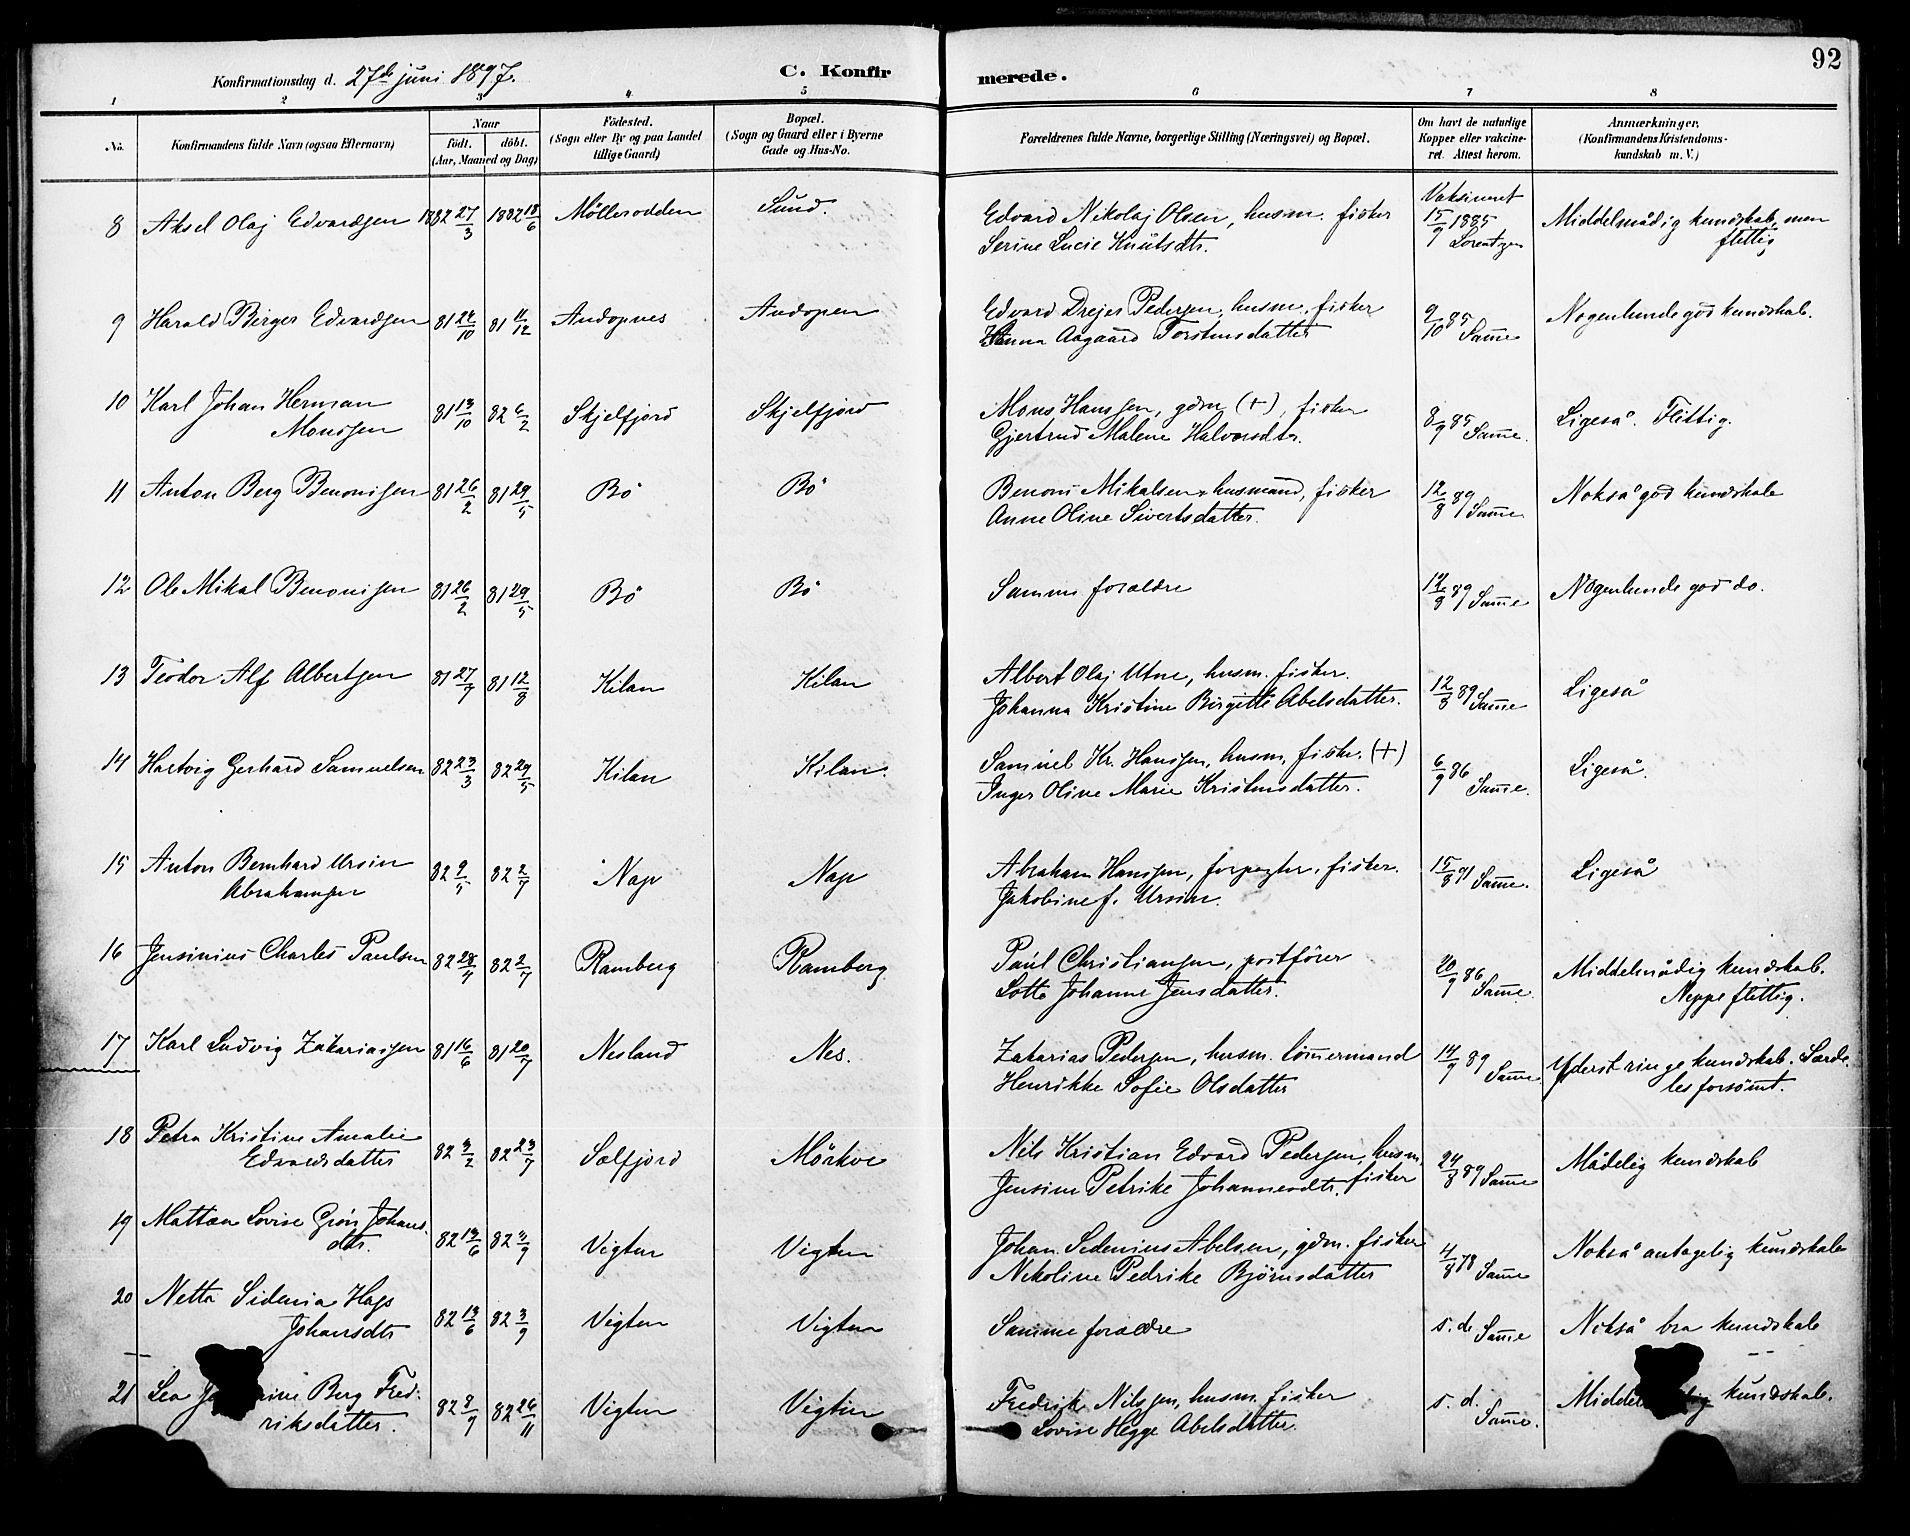 92
Konfirmationsdag d. 27de juni 1897.
C. Konfirmerede.
1 2 3 4 5 6 7 8
No.
Konfirmandens fulde Navn (ogsaa Efternavn)
Naar
födt. döbt.
(Aar, Maaned og Dag)
Födested.
(Sogn eller By og paa Landet
tillige Gaard)
Bopæl.
(Sogn og Gaard eller i Byerne
Gade og Hus-No.
Forældrenes fulde Navne, borgerlige Stilling (Næringsvei) og Bopæl.
Om havt de naturlige
Kopper eller vakcine-
ret. Attest herom.
Anmærkninger,
(Konfirmandens Kristendoms-
kundskab m. V.)
8 Aksel Olaj Edvardsen 1882 27/3 1882 18/6 Möllerodden Sund. Edvard Nikolaj Olsen, husm. fisker
Serine Lucie Knutsdtr.
Vaksinert
15/9 1885
Lorentzen
Middelmådig kundskab, men
flittig
9 Harald Birger Edvardsen 81 24/10 81 11/12 Andopnes Andopen Edvard Drejer Pedersen, husm. fisker
Hanna Aagaard Torstensdatter
9/10 85 Samme
Nogenlunde god kundskab.
10 Karl Johan Herman
Monssen 81 13/10 82 6/2 Skjelfjord Skjelfjord Mons Hanssen, gdm. (+), fisker
Gjertrud Malene Halvorsdtr.
8/9 85 Samme.
Ligeså. Flittig.
11 Anton Berg Benonisen 81 26/2 81 29/5 Bö Bö Benoni Mikalsen, husmand, fisker
Anne Oline Sivertsdatter.
12/8 89 Samme
Nokså god kundskab
12 Ole Mikal Benonisen 81 26/2 81 29/5 Bö Bö Samme forældre
12/8 89 Samme
Nogenlunde god do.
13 Teodor Alf Albertsen 81 27/7 81 12/8 Kilan Kilan Albert Olaj Utne, husm. fisker.
Johanna Kristine Birgitte Abelsdatter.
12/8 89 Samme
Ligeså
14 Hartvig Gerhard Samuelsen 82 23/3 82 29/5 Kilan Kilan. Samuel Kr. Hanssen, husm. fisker. (+)
Inger Oline Marie Kristensdatter.
6/9 86 Samme.
Ligeså.
15 Anton Bernhard Ursin
Abrahamsen 82 9/5 82 2/7 Nap Nap Abraham Hanssen, forpagter, fisker.
Jakobine f. Ursin.
15/8 91 Samme.
Ligeså
16 Jensinius Charles Paulsen 82 28/4 82 2/7 Ramberg Ramberg Paul Christiansen, postförer
Lotte Johanne Jensdatter.
20/9 86 Samme
Middelmådig kundskab.
Neppe flittig.
17 Karl Ludvig Zakariassen 81 16/6 81 20/7 Nesland Nes. Zakarias Pedersen, husm. tömmermand
Henrikke Sofie Olsdatter
14/9 89 Samme
Yderst ringe kundskab. Særde-
les forsömt.
18 Petra Kristine Amalie
Edvardsdatter 82 3/2 82 23/7 Solfjord Mörkve Nils Kristian Edvard Pedersen, husm.
Jensine Petrike Johannesdtr. fisker
24/8 89 Samme
Mådelig kundskab
19 Mattæa Lovise Grön Johans
dtr. 82 13/6 82 3/9 Vigten Vigten Johan Sedenius Abelsen, gdm. fisker
Nekoline Pedrike Björnsdatter
4/8 Samme
Nokså antagelig kundskab
20 Netta Sidenia Hags
Johansdtr 82 13/6 82 3/9 Vigten Vigten Samme forældre
s. d. Samme
Nokså bra kundskab
21 Lea Berg Fred-
riksdatter. 82 3/9 82 26/11 Vigten Vigten Fredrik Nilssen, husm. fisker
Lovise Hegge Abelsdatter.
s. d. Samme.
kundskab.